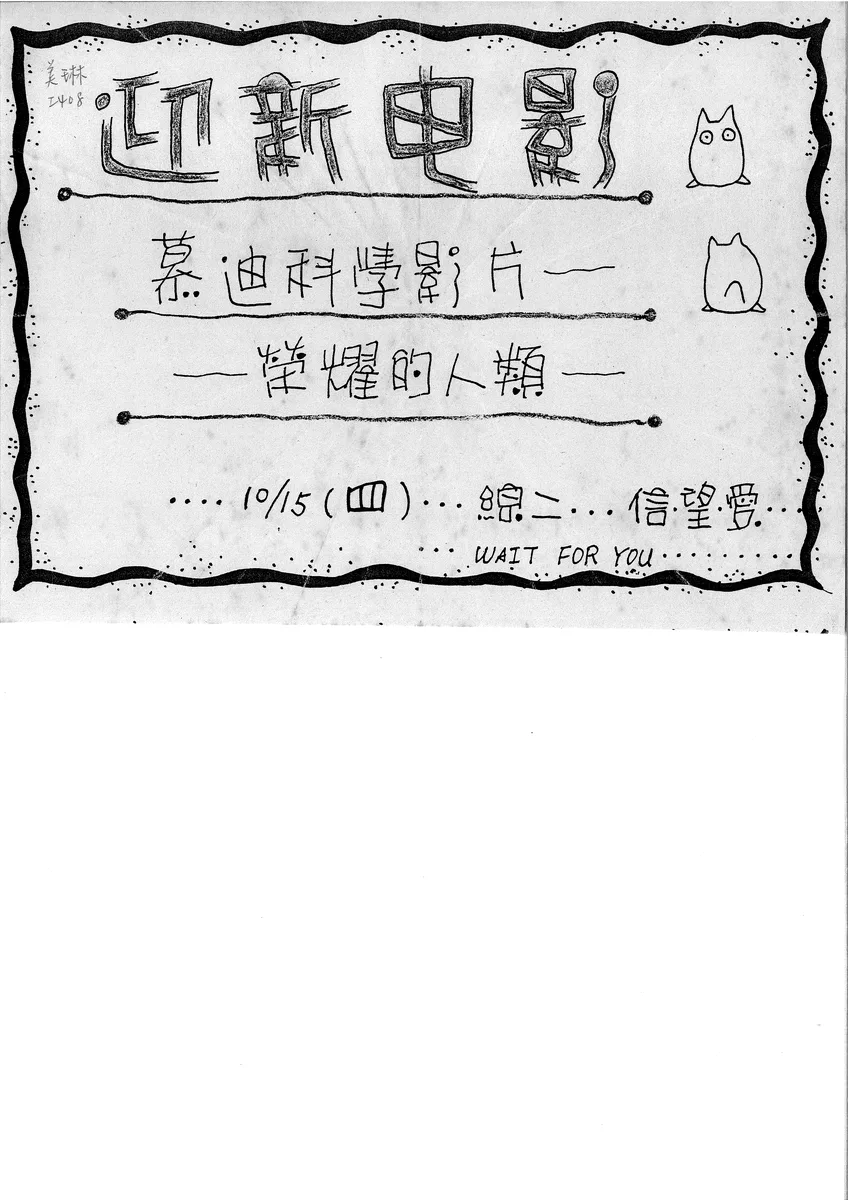 美琳
I408
迎新电影
慕迪科學影片——
——榮耀的人類——
····10/15(四)···綜二···信·望·愛···
···WAIT FOR YOU··········